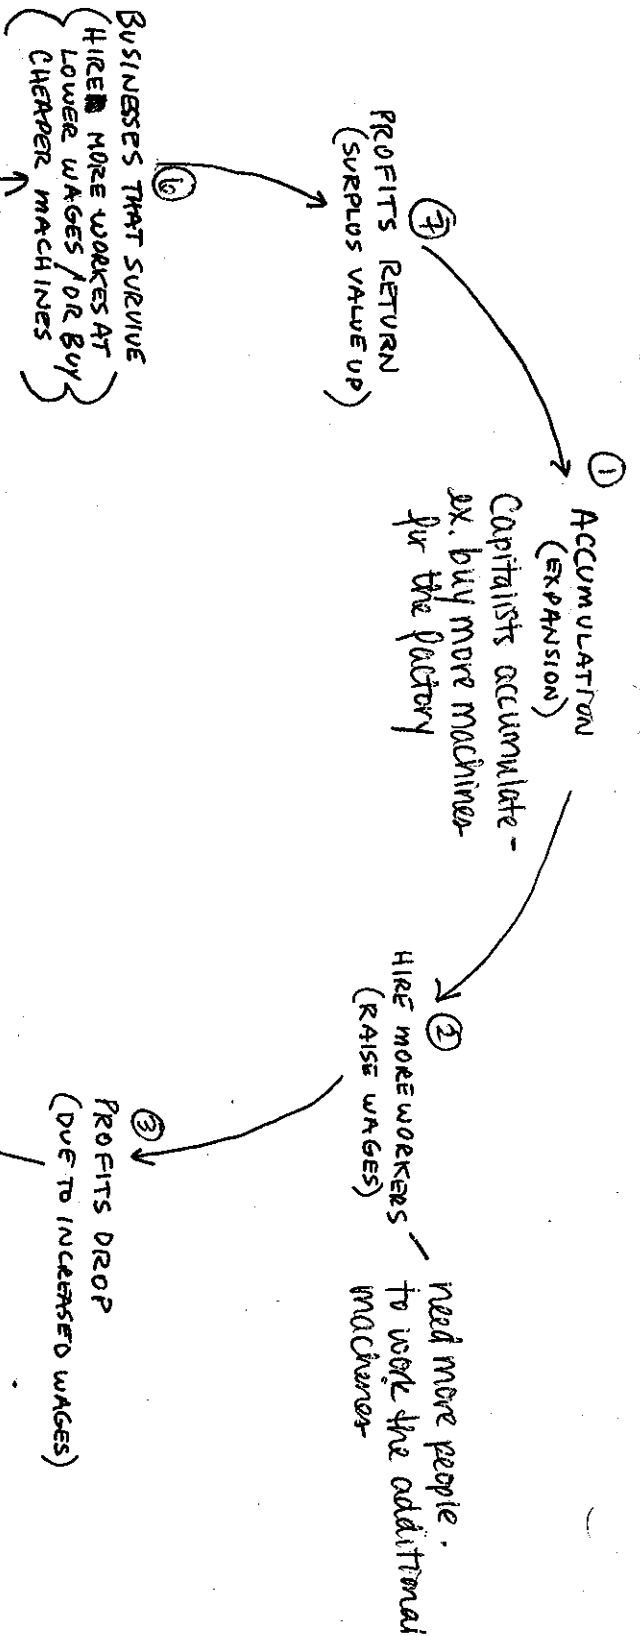 ① ACCUMULATION
(EXPANSION)
Capitalists accumulate -
ex. buy more machines
for the factory
② HIRE MORE WORKERS -
(RAISE WAGES)
need more people.
to work the additional
machines
③
PROFITS DROP
(DUE TO INCREASED WAGES)
⑥
BUSINESSES THAT SURVIVE
(HIRE MORE WORKES AT
LOWER WAGES / OR BUY
CHEAPER MACHINES)
⑦
PROFITS RETURN
(SURPLUS VALUE UP)